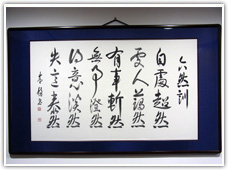 六然訓
自處超然
處人藹然
有事斬然
無事澄然
得意淡然
失意泰然